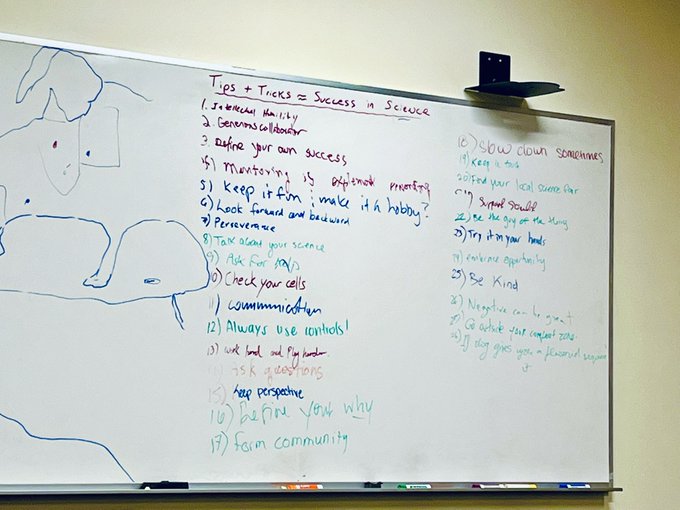 Tips + Tricks = Success in Science
1. Intellectual Humility
2. Generous collaborator
3. Define your own success
4) Mentoring is
5) Keep it fun ; make it a hobby?
6) Look forward and backward
7) Perseverance
8) Talk about your science
9) Ask for help
10) Check your cells
11) communication
12) Always use controls!
13) work hard and Play harder
14) Ask questions
15) keep perspective
16) Define your why
17) Form community
18) Slow down sometimes
19) Keep in
20) Find your local science fair
21) support
22) Be the guy of the thing
23) Try it in your hands
24) embrace opportunity
25) Be Kind
26) Negative can be great
27) Go outside your comfort zone.
28) If dog gives you a